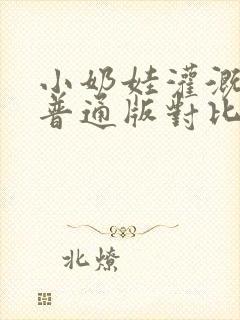 小奶娃灌溉
普通版對比
北燎